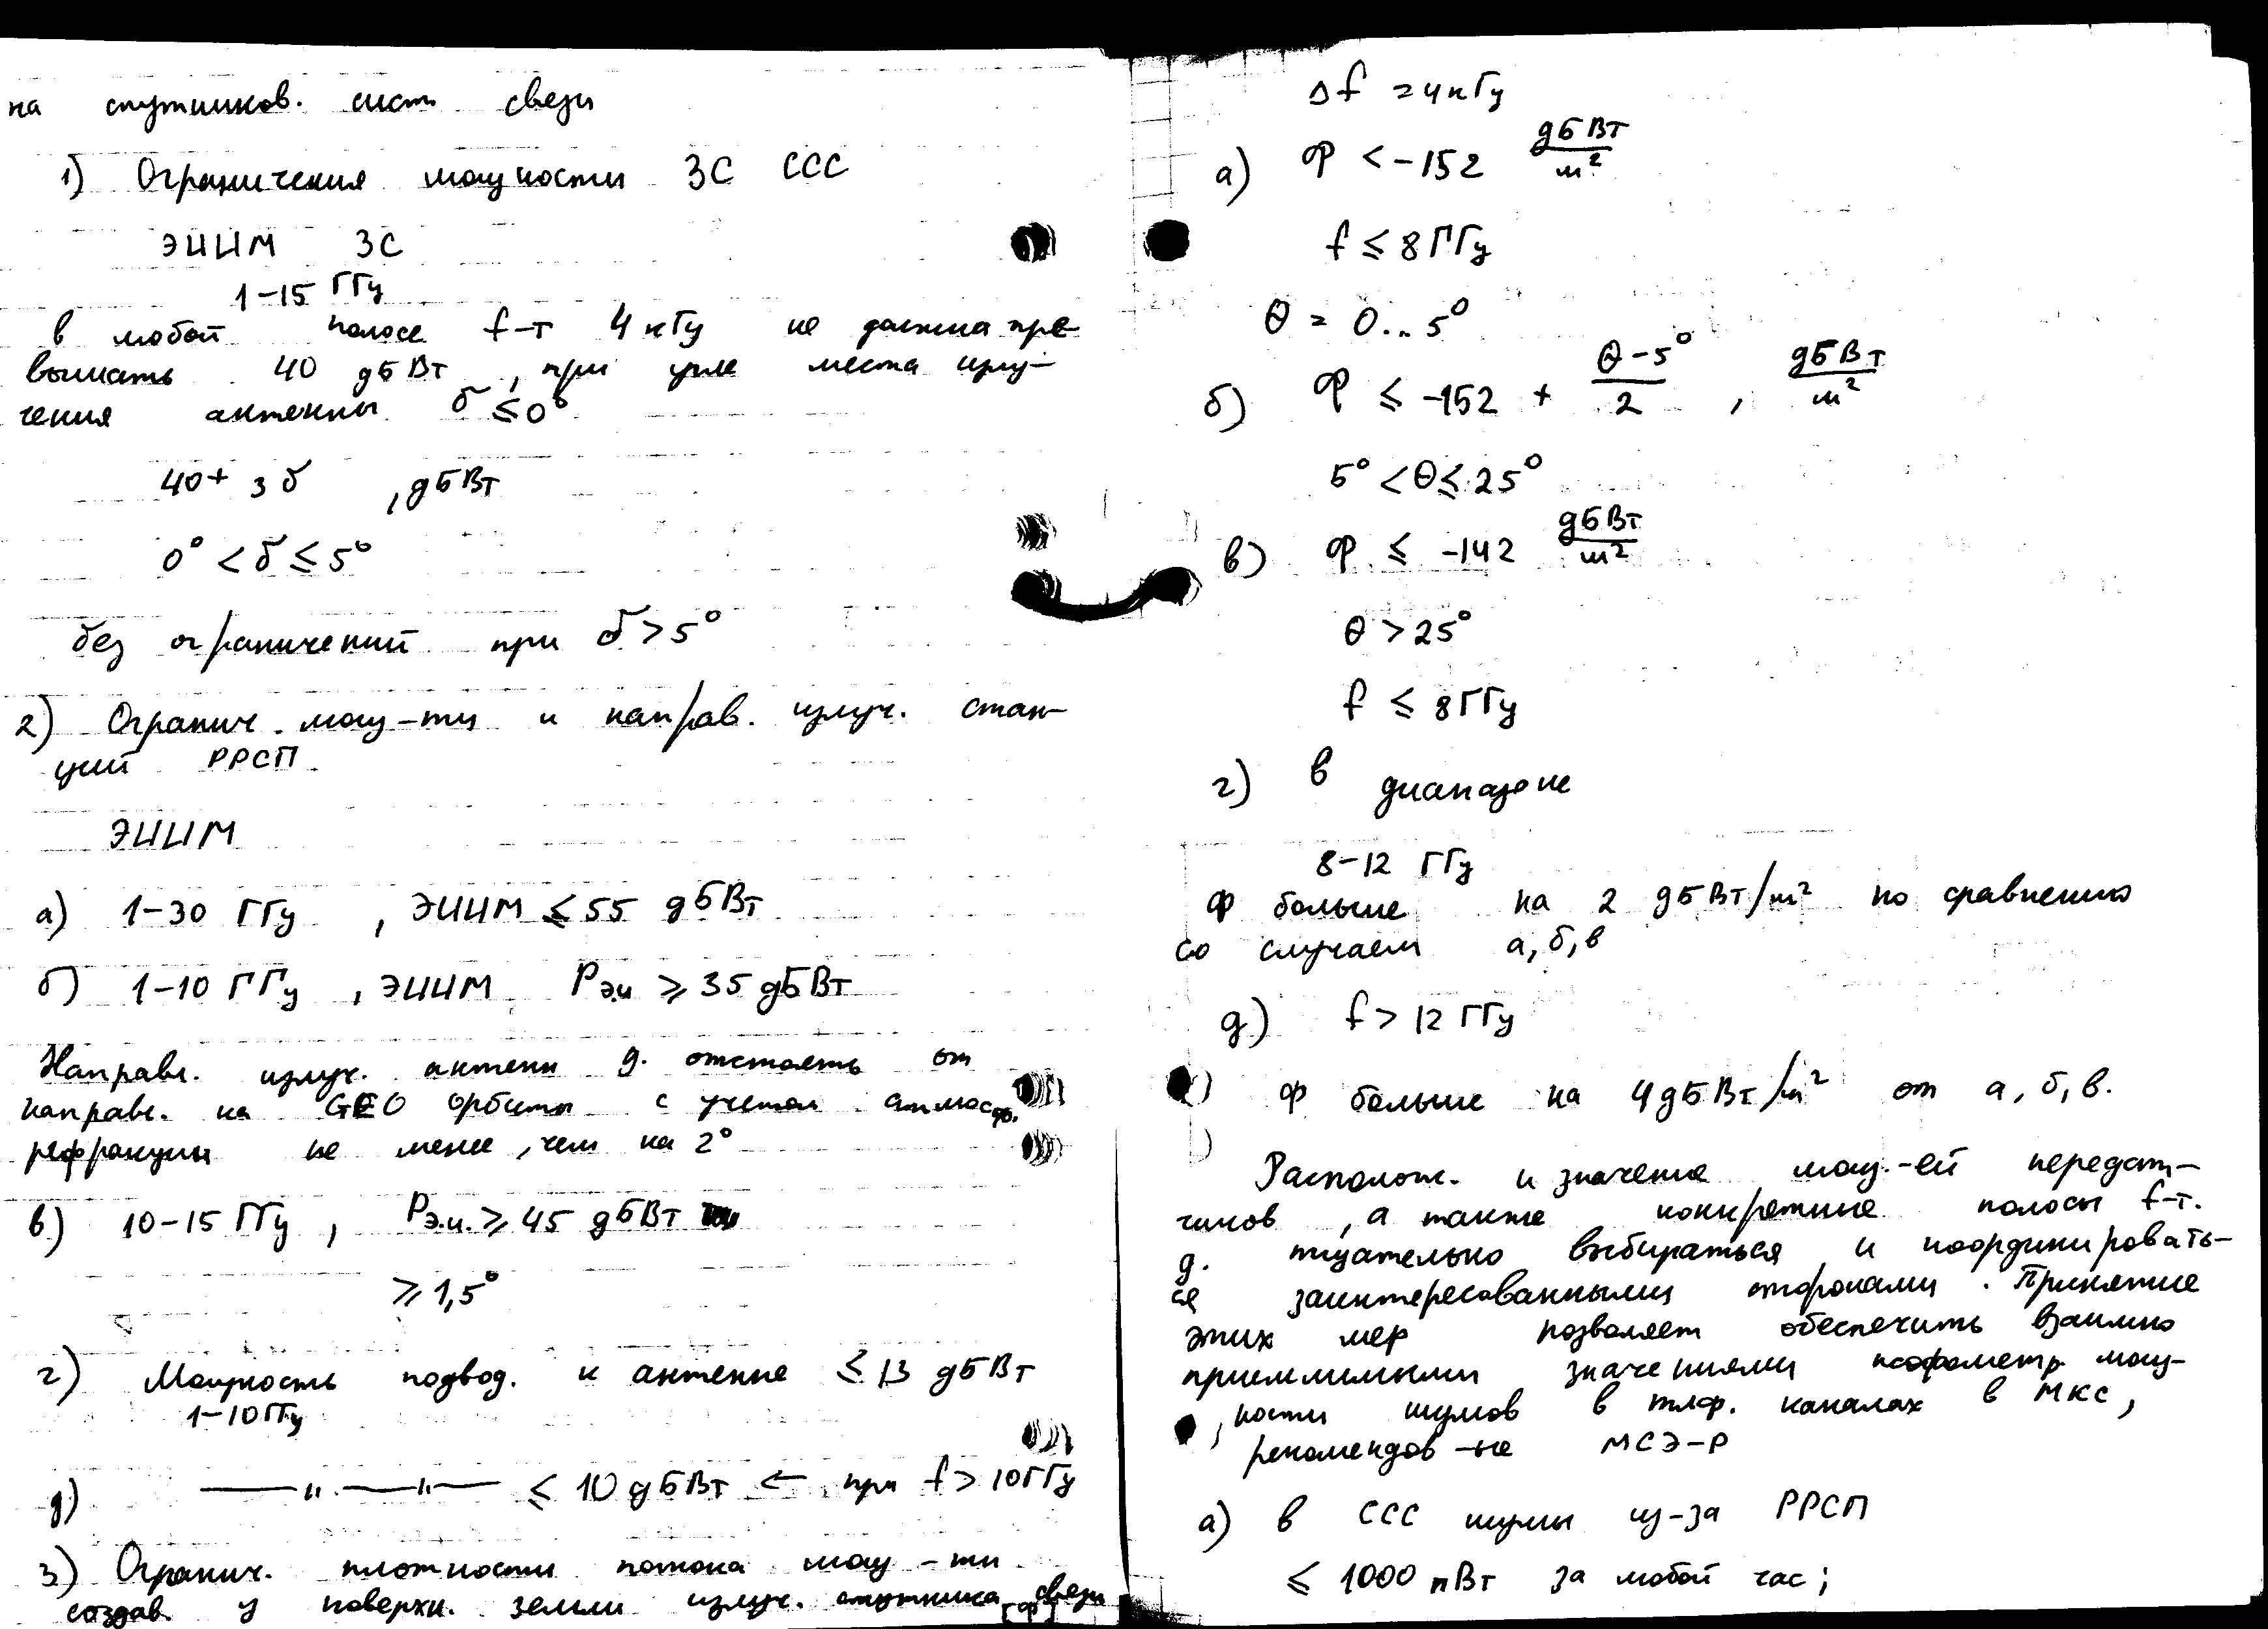 на спутников. сист связи
1) Ограничения мощности ЗС ССС
ЭИИМ ЗС
1-15 ГГц
в любой полосе f-т 4 кГц не должна пре-
вышать 40 дБВт, при угле места излу-
чения антенны δ ≤ 0°
40 + 3δ , дБВт
0° < δ ≤ 5°
без ограничений при δ > 5°
2) Огранич. мощ-ти и направ. излуч. стан-
ций РРСП
ЭИИМ
а) 1-30 ГГц , ЭИИМ ≤ 55 дБВт
б) 1-10 ГГц , ЭИИМ Pэ.и ≥ 35 дБВт
Направл. излуч. антенн д. отстоять от
направл. на GEO орбиты с учетом атмосф.
рефракции не менее, чем на 2°
в) 10-15 ГГц , Pэ.и. ≥ 45 дБВт
≥ 1,5°
г) Мощность подвод. к антенне ≤ 13 дБВт
1-10 ГГц
д) —"—"— ≤ 10 дБВт ← при f > 10 ГГц
3) Огранич. плотности потока мощ-ти
создав. у поверхн. земли излуч. спутника связи [Ф]
Δf = 4 кГц
а) Ф < -152 дБВт/м²
f ≤ 8 ГГц
θ = 0...5°
б) Ф ≤ -152 + (θ-5°)/2 , дБВт/м²
5° < θ ≤ 25°
в) Ф ≤ -142 дБВт/м²
θ > 25°
f ≤ 8 ГГц
г) в диапазоне
8-12 ГГц
Ф больше на 2 дБВт/м² по сравнению
со случаем а, б, в
д) f > 12 ГГц
Ф больше на 4 дБВт/м² от а, б, в.
Располож. и значение мощ.-ей передат-
чиков , а также конкретные полосы f-т.
д. тщательно выбираться и координировать-
ся заинтересованными сторонами. Принятие
этих мер позволяет обеспечить взаимно
приемлимыми значениями псофометр. мощ-
ности шумов в тлф. каналах в МКС,
рекомендов-ые МСЭ-Р
а) в ССС шумы из-за РРСП
≤ 1000 пВт за любой час;